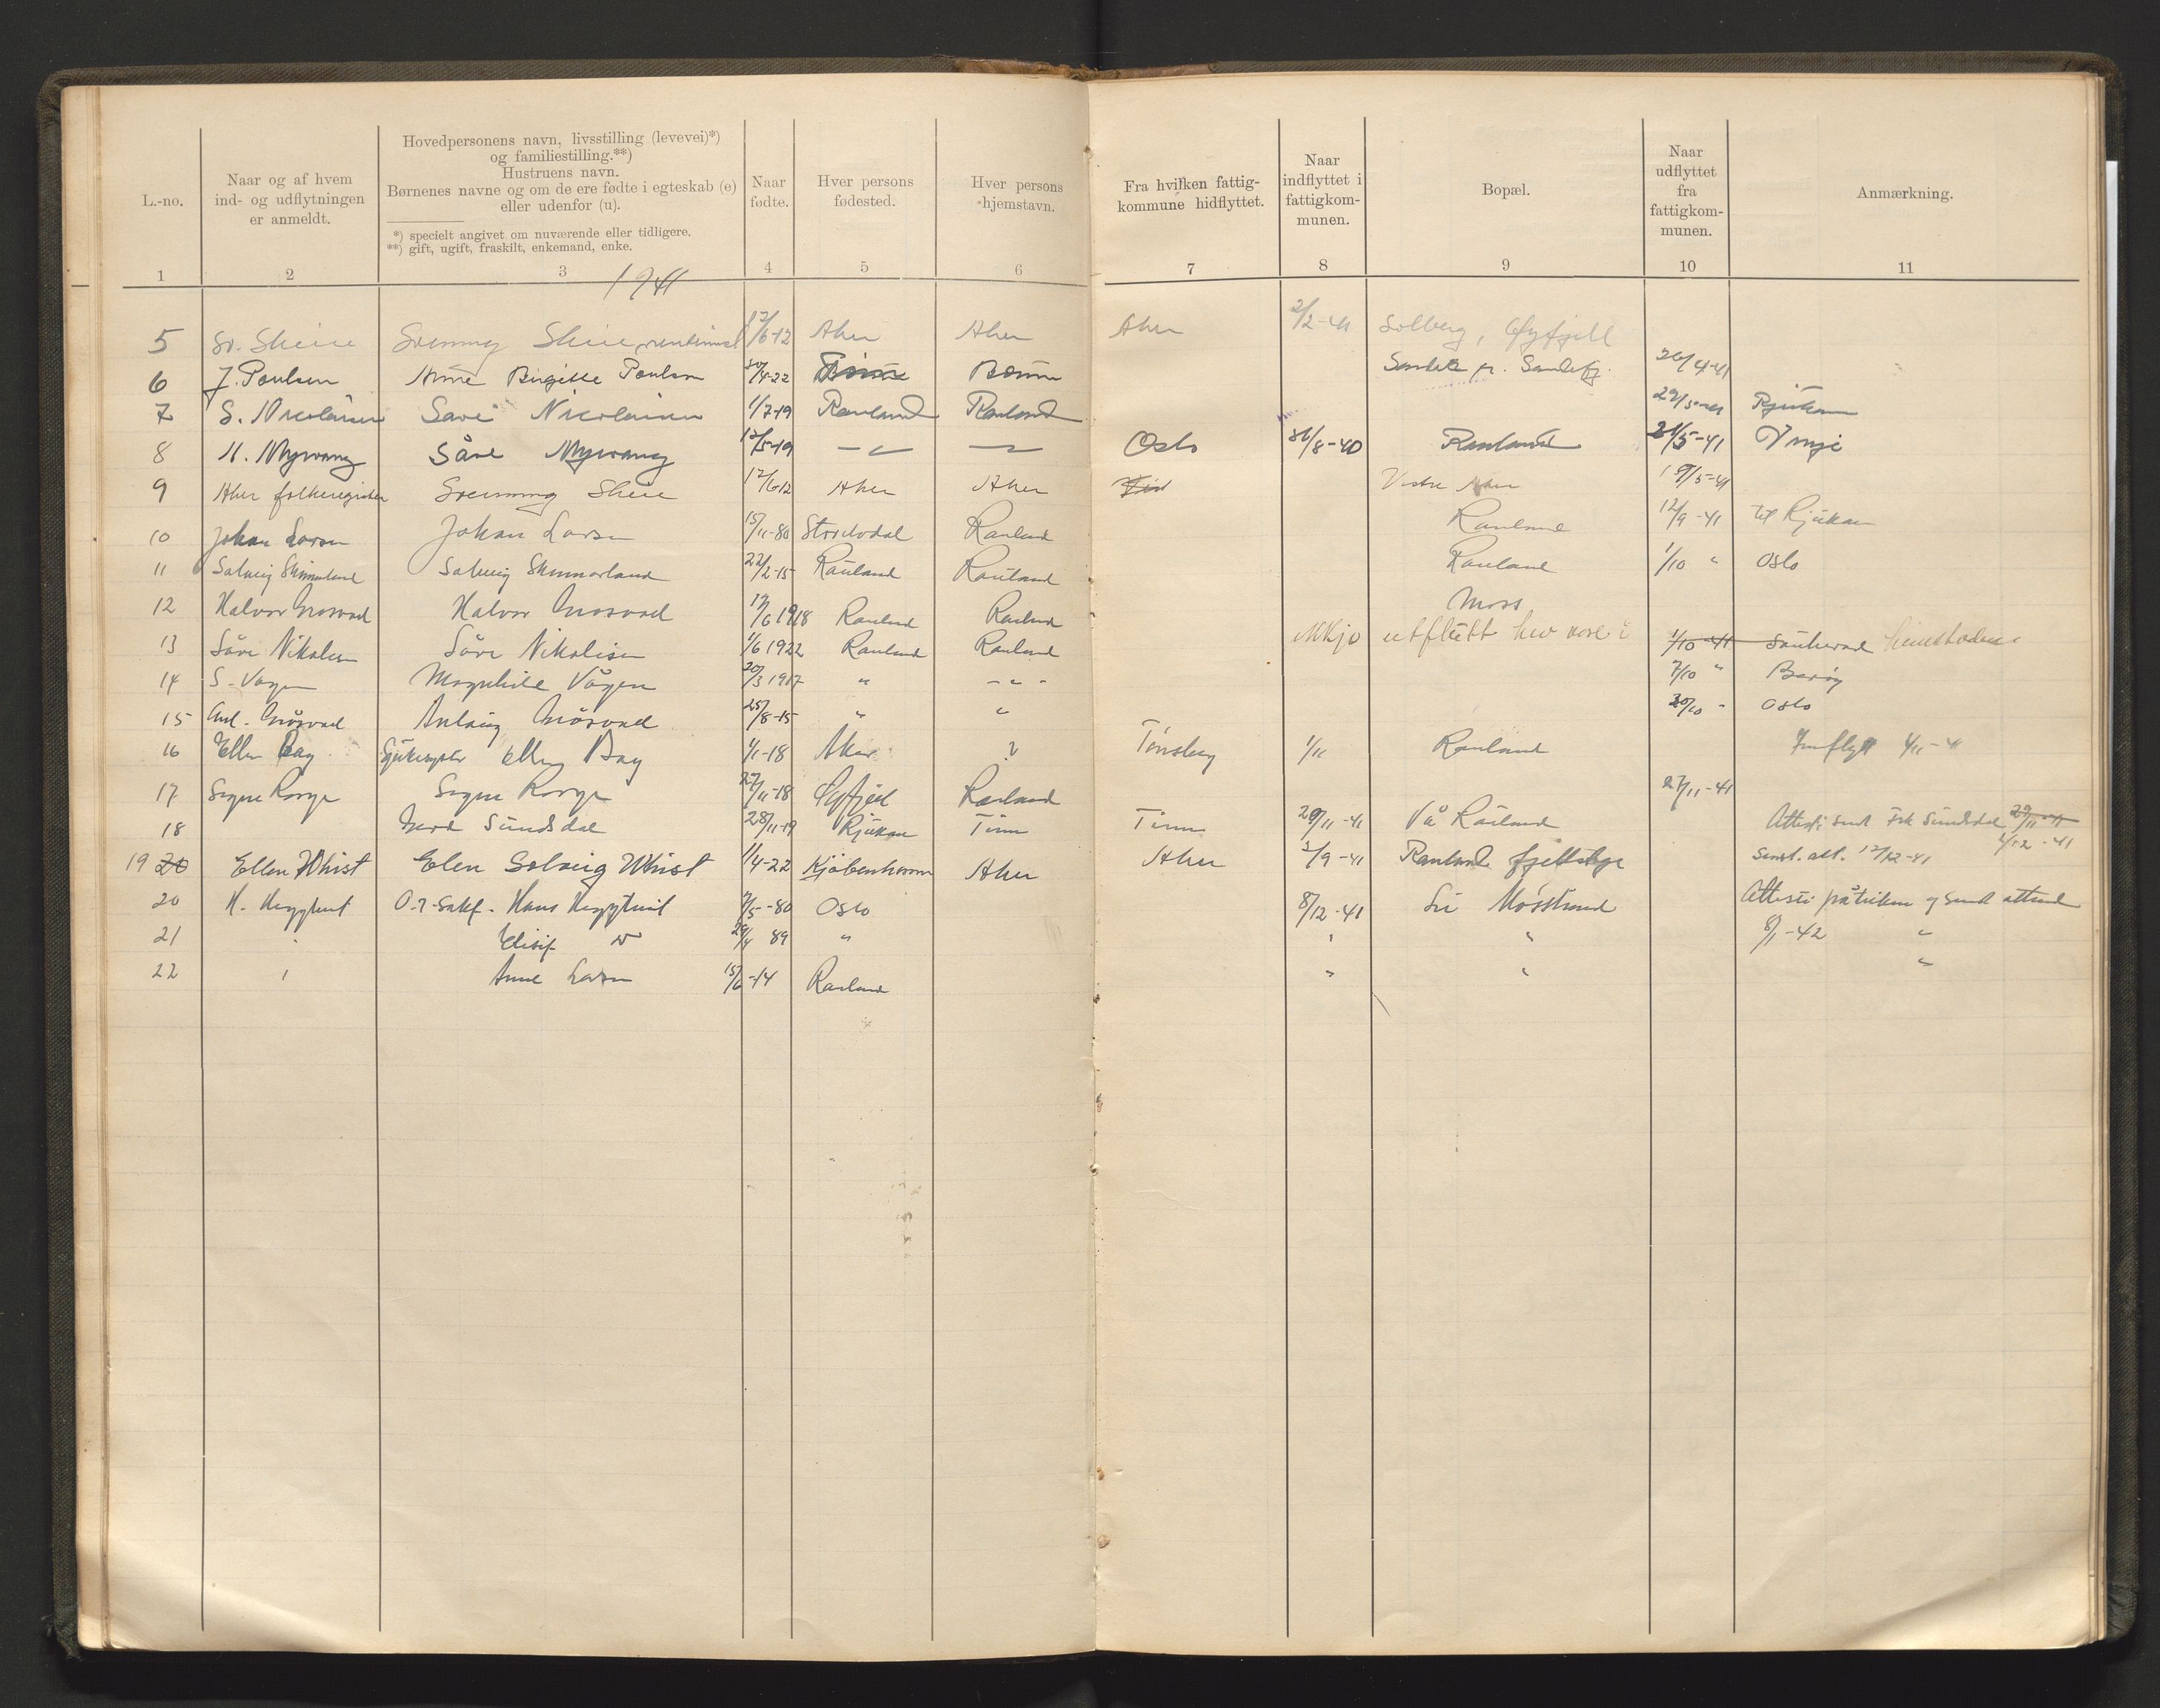 L.-no.
Naar og af hvem
ind- og udflytningen
er anmeldt.
Hovedpersonens navn, livsstilling (levevei)*)
og familiestilling.**)
Hustruens navn.
Børnenes navne og om de ere fødte i egteskab (e)
eller udenfor (u).
*) specielt angivet om nuværende eller tidligere.
**) gift, ugift, fraskilt, enkemand, enke.
Naar
fødte.
Hver persons
fødested.
Hver persons
hjemstavn.
Fra hvilken fattig-
kommune hidflyttet.
Naar
indflyttet i
fattigkom-
munen.
Bopæl.
Naar
udflyttet
fra
fattigkom-
munen.
Anmærkning.
1 2 3 4 5 6 7 8 9 10 11
1941
5 Sv. Skeie Svenning Skeie 12/6-12 Aker Aker Aker 2/2-41 Solberg, Øyfjell
6 J. Poulsen Anne Birgitte Poulsen 30/4-22 Bømme Bømme pr. Sandefj. 26/4-41
7 S. Nicolaisen Save Nicolaisen 1/7-19 Rauland Rauland 29/5-41 Rjukan
8 N. Myrvang Såve Myrvang 12/5-19 Oslo 31/8-40 Rauland 21/5-41
9 Aker folkeregister Svenning Skeie 12/6-12 Aker Aker Vestre Aker 19/5-41
10 Johan Larsen Johan Larsen 15/11-80 Rauland Rauland 12/9-41 til Rjukan
11 Solveig Skinnarland Solveig Skinnarland 22/2-15 Rauland Rauland Rauland 1/10 " Oslo
12 Halvor Mosvad Halvor Mosvad 17/6 1918 Rauland Rauland Moss
13 Såve Nikolisen Såve Nikolisen 1/6 1922 Rauland Rauland utflutt 1/10-41 Sauherad
14 S. Vågen Magnhild Vågen 20/3 1917 " - " - 7/10 "
15 Anl. Mosvad Anlaug Mosvad 25/8-15 " " 20/10 " Oslo
16 Ellen Bay Sjukesyster Ellen Bay 1/1-18 Aker ? Tønsberg 1/11 Rauland Innflytt 4/11-41
17 Signe Rorge Signe Rorge 27/11-18 Øyfjell Rauland 27/11-41
18 Sundsdal 28/11-19 Rjukan Tinn Tinn 29/11-41 Vå Rauland Attesti send Frk Sundsdal 29/11-41 4/12-41
19 20 Ellen Whist Elen Solveig Whist 1/4-22 Kjøbenhavn Aker Aker 2/9-41 Rauland fjellstoge Sendt. att. 12/12-41
20 H. Heggtveit O.r.sakf. Hans Heggtveit 7/5-80 Oslo 8/12-41 Møsstrand Attesti påtriken og send attende
21 Elisif 29/4 89 " " " 8/1-42 "
22 Anne Larsen 15/6-14 Rauland " " "